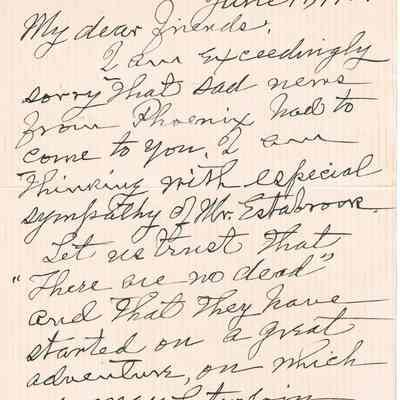 June
My dear friends:
I am exceedingly
sorry that sad news
from Phoenix had to
come to you. I am
thinking with especial
sympathy of Mr. Estabrook.
Let us trust that
"There are no dead"
and that they have
started on a great
adventure, on which